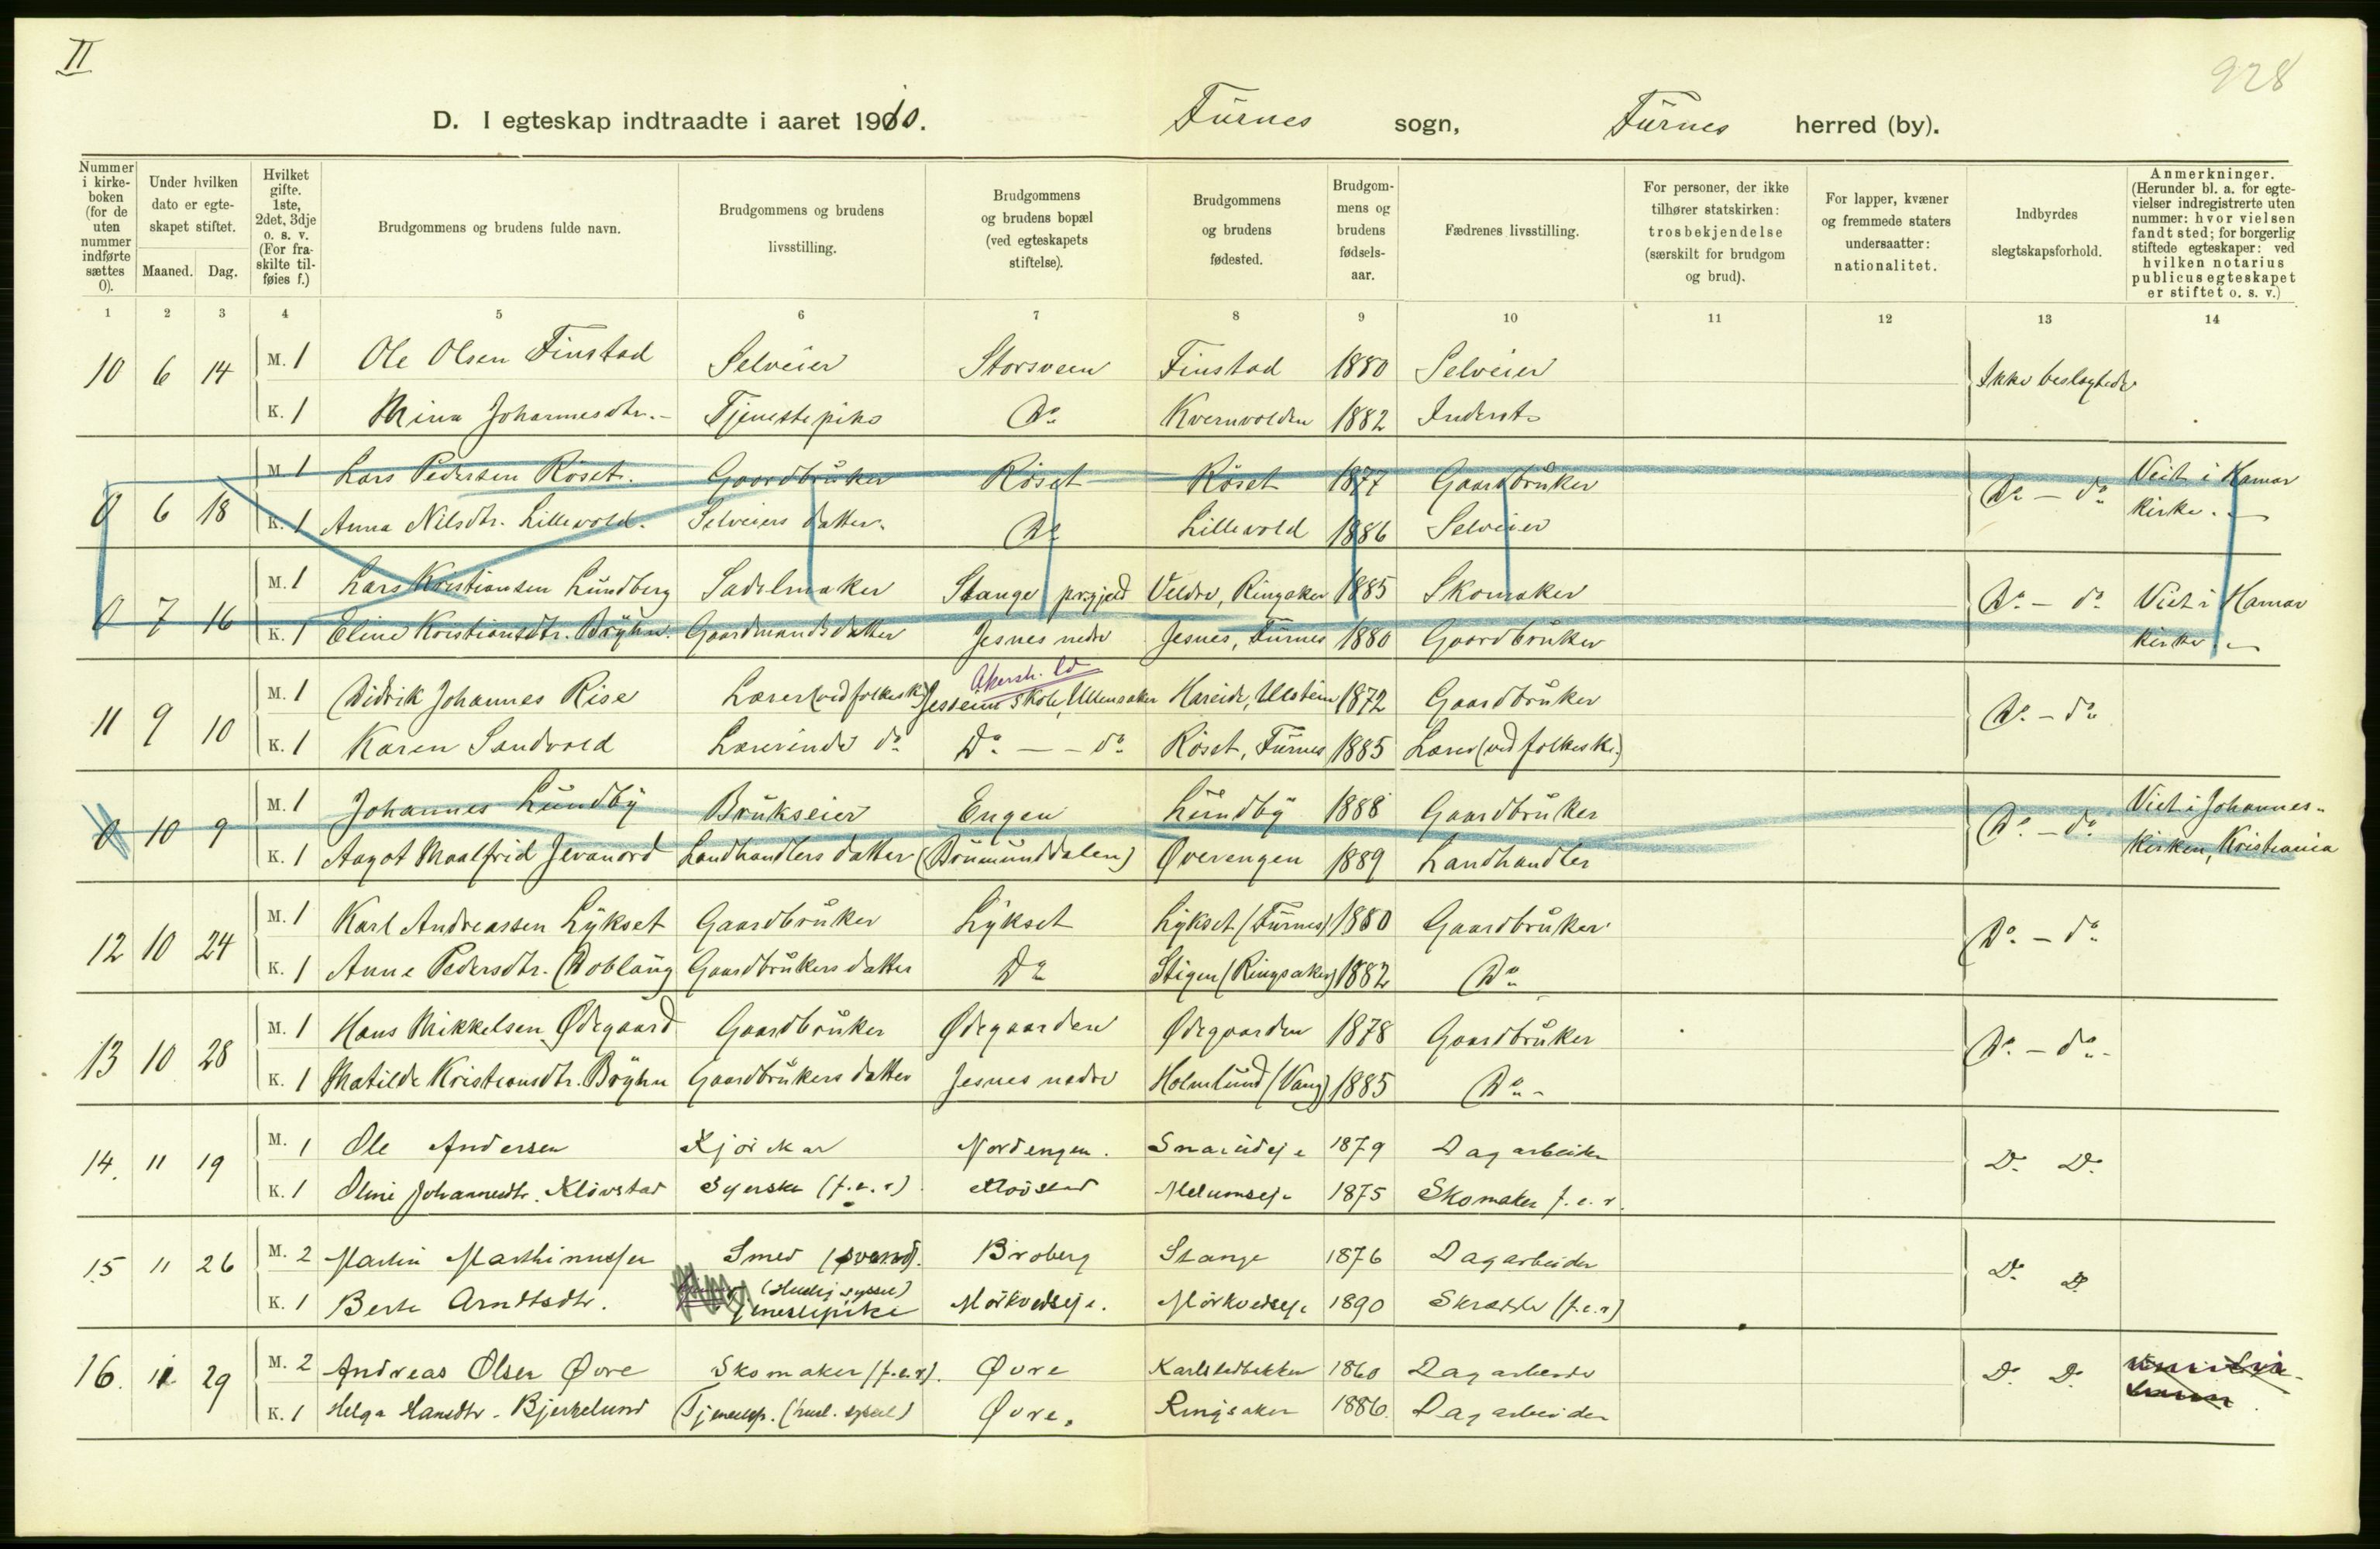 II
928
D. I egteskap indtraadte i aaret 1910. Fürnes sogn, Fürnes herred (by).
Nummer i kirkeboken (for de uten nummer indførte sættes 0).
Under hvilken dato er egteskapet stiftet.
Maaned. Dag.
Hvilket gifte. 1ste, 2det, 3dje o. s. v. (For fraskilte tilføies f.)
Brudgommens og brudens fulde navn.
Brudgommens og brudens livsstilling.
Brudgommens og brudens bopæl (ved egteskapets stiftelse).
Brudgommens og brudens fødested.
Brudgommens og brudens fødselsaar.
Fædrenes livsstilling.
For personer, der ikke tilhører statskirken: trosbekjendelse (særskilt for brudgom og brud).
For lapper, kvæner og fremmede staters undersaatter: nationalitet.
Indbyrdes slegtskapsforhold.
Anmerkninger. (Herunder bl. a. for egtevielser indregistrerte uten nummer: hvor vielsen fandt sted; for borgerlig stiftede egteskaper: ved hvilken notarius publicus egteskapet er stiftet o. s. v.)
1 2 3 4 5 6 7 8 9 10 11 12 13 14
10 6 14 M. 1 Ole Olsen Finstad Selveier Storsveen Finstad 1880 Selveier Ikke beslegtede
K. 1 Mina Johannesdtr. - Tjenestepike Do. Kvernvolden 1882 Inderst
0 6 18 M 1 Lars Pedersen Röset. Gaardbrüker Röset Röset 1877 Gaardbrüker Do. - do. Viet i Hamar
K. 1 Anna Nilsdtr. Lillevold. Selveiers datter. Do Lillevold 1886 Selveier kirke.
0 7 16 M. 1 Lars Kristiansen Lündberg Sadelmaker Stange prgjeld Veldre, Ringsaker 1885 Skomaker Do. - do. Viet i Hamar
K. 1 Eline Kristiansdtr. Bryhn. Gaardmandsdatter Jesnes nedre Jesnes, Fürnes 1880 Gaardbrüker kirke.
Akersh.
11 9 10 M. 1 Didrik Johannes Rise Lærer (ved folkesk.) Jessheim skole, Ullensaker Hareide, Ulstein 1872 Gaardbrüker Do. - do.
K. 1 Karen Sandvold Lærerinde do. Do. - - do. Röset, Fürnes 1885 Lærer (ved folkesk.)
0 10 9 M. 1 Johannes Lündby Brükseier Engen Lündby 1888 Gaardbrüker Do. - do. Viet i Johannes-
K. 1 Aagot Maalfrid Jevanord Landhandlers datter (Brümünddalen) Øverengen 1889 Landhandler kirken, Kristiania
12 10 24 M. 1 Karl Andreassen Lykset Gaardbrüker Lykset Lykset (Fürnes) 1880 Gaardbrüker Do. - do.
K. 1 Anne Pedersdtr. Hoblaüg Gaardbrükers datter Do Stigen (Ringsaker) 1882 Do.
13 10 28 M. 1 Hans Mikkelsen Ødegaard Gaardbrüker Ødegaarden Ødegaarden 1878 Gaardbrüker Do. - do.
K. 1 Matilde Kristiansdtr. Bryhn Gaardbrükers datter Jesnes nedre Holmlünd (Vang) 1885 Do.
14. 11 19 M. 1 Ole Andersen Nordengen. 1879 Dagarbeider Do. Do.
K. 1 Oline Johannesdtr. Klövstad Syerske (f.e.r) Klövstad Melumseje 1875 Skomaker f.e.r.
15 11 26 M. 2 Martin Marthinussen Smed (svend). Broberg Stange 1876 Dagarbeider Do. Do.
K. 1 Berte Arndtsdtr. (Huslig syssel) Tjenestepike Mörkvedseje. Mörkvedseje 1890 Skrædder (f.e.r)
16. 11 29 M. 2 Andreas Olsen Øvre Skomaker (f.e.r). Øvre Karlstadbakken 1860 Dagarbeider Do. Do.
K. 1 Helga Hansdtr. Bjerkelund Tjenestep. (husl. syssel) Øvre. Ringsaker 1886. Dagarbeider